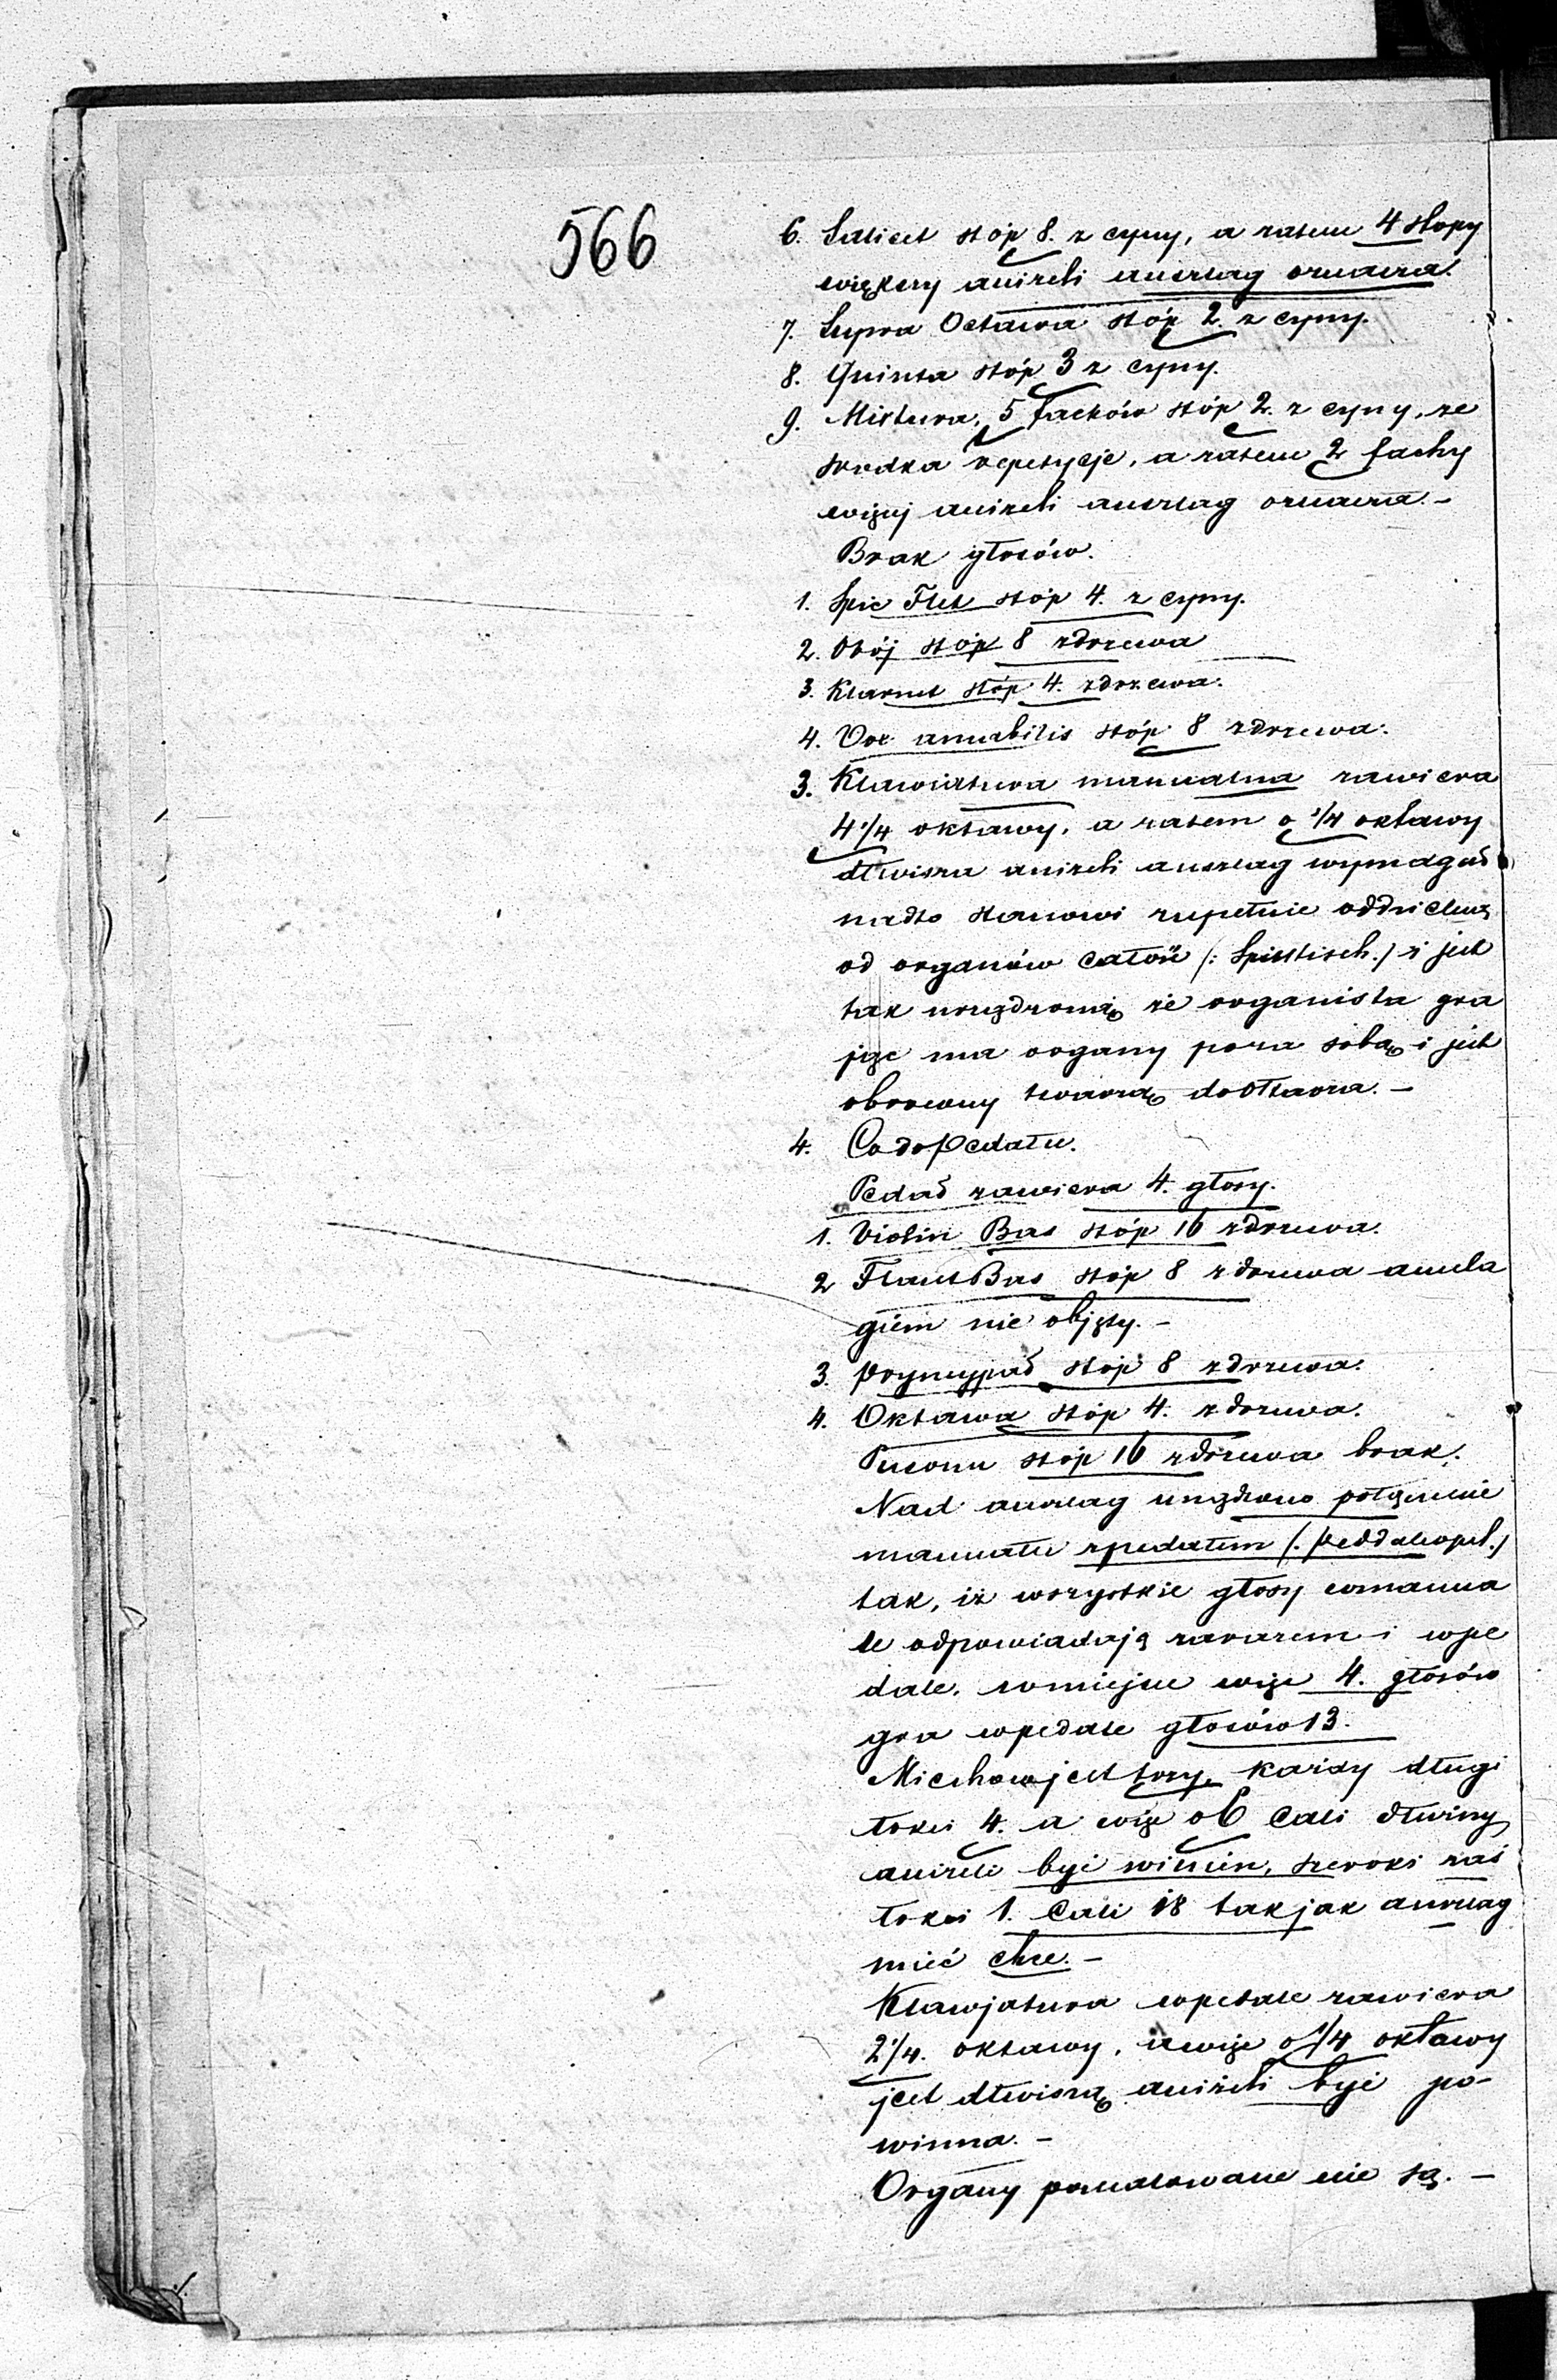 566
6. Salicet stóp 8. z cyny, a zatem 4 stopy
większy aniżeli anszlag oznacza.
7. Supra Octawa stóp 2. z cyny.
8. Quinta stóp 3 z cyny.
9. Mixtura, 5 fachów stóp 2. z cyny, ze
srodka repetycje, a zatem 2 fachy
więcej aniżeli anszlag oznacza. –
Brak głosów.
1. Spic Flet stóp 4. z cyny.
2. Obój stóp 8 zdrzewa
3. Klarnet stóp 4. zdrzewa.
4. Vox amabilis stóp 8 zdrzewa.
3. Klawiatura manualna zawiera
4 1/4 oktawy, a zatem o 1/4 oktawy
dłuższa aniżeli anszlag wymagał
nadto stanowi zupełnie oddzielną
od organów całość /: Spieltisch./ i jest
tak urządzoną że organista gra
jąc ma organy poza sobą i jest
obrocony twarzą do Ołtarza. –
4. Co do Pedału.
Pedał zawiera 4. głosy.
1. Violin Bas stóp 16 zdrzewa.
2 Flaut Bas stóp 8 zdrzewa ansla
giem nie objęty. –
3. Pryncypał stóp 8 zdrzewa.
4. Oktawa stóp 4. zdrzewa.
Puzonu stóp 16 zdrzewa brak.
Nad anszlag urządzono połączenie
manuału zpedałem /. Peddalcopel./
tak, iż wszystkie głosy wmanua
le odpowiadają zarazem i wpe
dale, wmiejsce więc 4. głosów
gra wpedale głosów 13.
Miechów jest trzy, każdy długi
łokci 4. a więc o 6 cali dłuższy
aniżeli być winien, szeroki zaś
łokci 1. cali 18 tak jak anszlag
mieć chce. –
Klawjatura wpedale zawiera
2 1/4. oktawy, a więc o 1/4 oktawy
jest dłuższą aniżeli być po-
winna. –
Organy pomalowane nie są. –